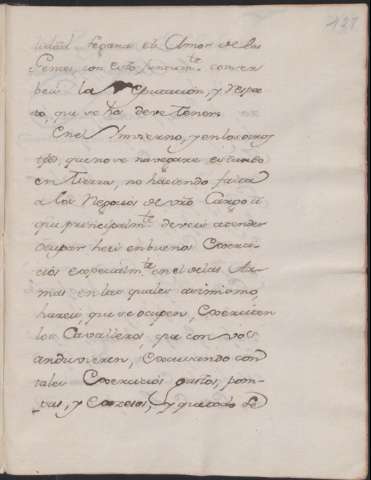 128
lidad segana el Amor de las
Gentes, con esto juntam.te conser
beis la reputacion, y respe
to, que se ha de se tener.
En el Invierno, y en los otros
tpõs, que no se navegare estando
en Tierra, no haciendo falta
a los Negocios de vrõ Cargo a
que principalm.te deveis atender
ocupar heis en buenos Exerci
cios especialm.te en el de las Ar
mas en las quales asimismo,
hareis, que se ocupen, Exerciten
los Cavalleros, que con vos
andubieren, Excusando con
tales Exercicios gastos, pom-
pas, y Excesos, y que todo se